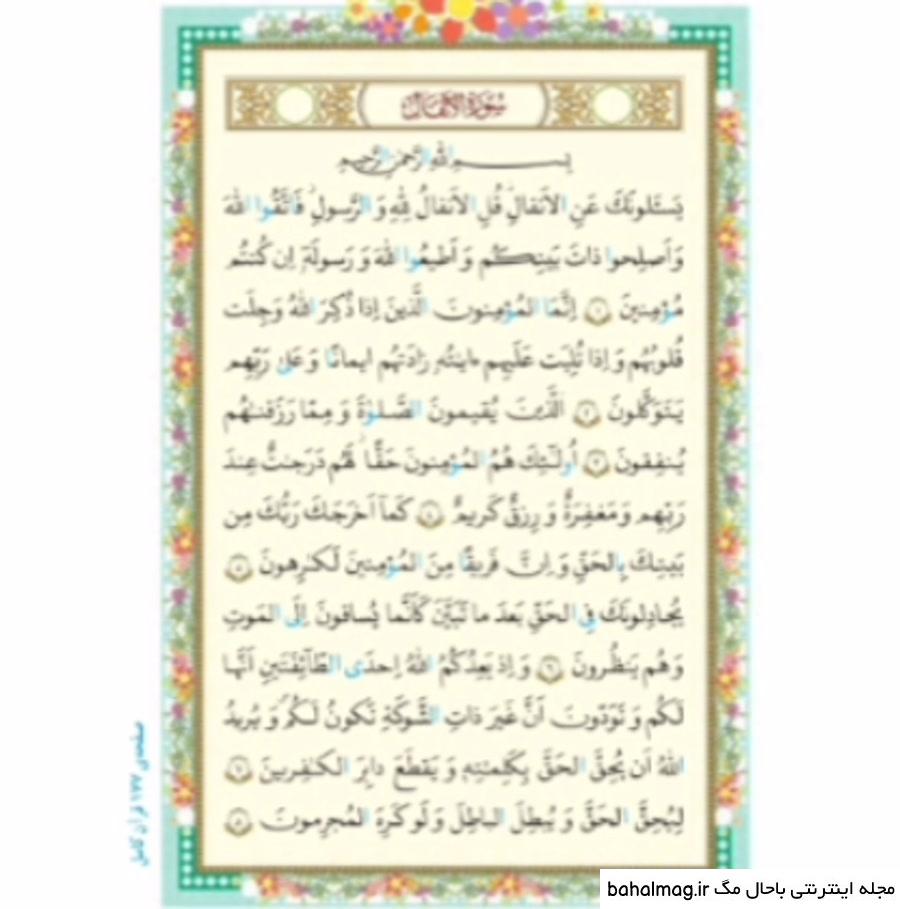 سُورَةُ الأَنفَال
بِسمِ اللهِ الرَّحمٰنِ الرَّحیمِ
یَسـَٔلونَكَ عَنِ الاَنفالِ ۖ قُلِ الاَنفالُ لِلّٰهِ وَ الرَّسولِ ۖ فَاتَّقُوا اللهَ
وَ اَصلِحوا ذاتَ بَینِكُم وَ اَطیعُوا اللهَ وَ رَسولَهٗ اِن كُنتُم
مُؤمِنینَ ﴿۱﴾ اِنَّمَا المُؤمِنونَ الَّذینَ اِذا ذُكِرَ اللهُ وَجِلَت
قُلوبُهُم وَ اِذا تُلِیَت عَلَیهِم ءایٰتُهٗ زادَتهُم ایمانًا وَ عَلیٰ رَبِّهِم
یَتَوَكَّلونَ ﴿۲﴾ اَلَّذینَ یُقیمونَ الصَّلوٰةَ وَ مِمّا رَزَقنٰهُم
یُنفِقونَ ﴿۳﴾ اُولٰٓئِكَ هُمُ المُؤمِنونَ حَقًّا ۚ لَهُم دَرَجٰتٌ عِندَ
رَبِّهِم وَ مَغفِرَةٌ وَ رِزقٌ كَریمٌ ﴿۴﴾ كَمآ اَخرَجَكَ رَبُّكَ مِن
بَیتِكَ بِالحَقِّ وَ اِنَّ فَریقًا مِنَ المُؤمِنینَ لَكٰرِهونَ ﴿۵﴾
یُجادِلونَكَ فِی الحَقِّ بَعدَ ما تَبَیَّنَ كَاَنَّما یُساقونَ اِلَی المَوتِ
وَ هُم یَنظُرونَ ﴿۶﴾ وَ اِذ یَعِدُكُمُ اللهُ اِحدَی الطّآئِفَتَینِ اَنَّها
لَكُم وَ تَوَدّونَ اَنَّ غَیرَ ذاتِ الشَّوكَةِ تَكونُ لَكُم وَ یُریدُ
اللهُ اَن یُحِقَّ الحَقَّ بِكَلِمٰتِهٖ وَ یَقطَعَ دابِرَ الكٰفِرینَ ﴿۷﴾
لِیُحِقَّ الحَقَّ وَ یُبطِلَ الباطِلَ وَ لَو كَرِهَ المُجرِمونَ ﴿۸﴾
صفحه‌ی ۱۷۷ قرآن کامل
مجله اینترنتی باحال مگ bahalmag.ir